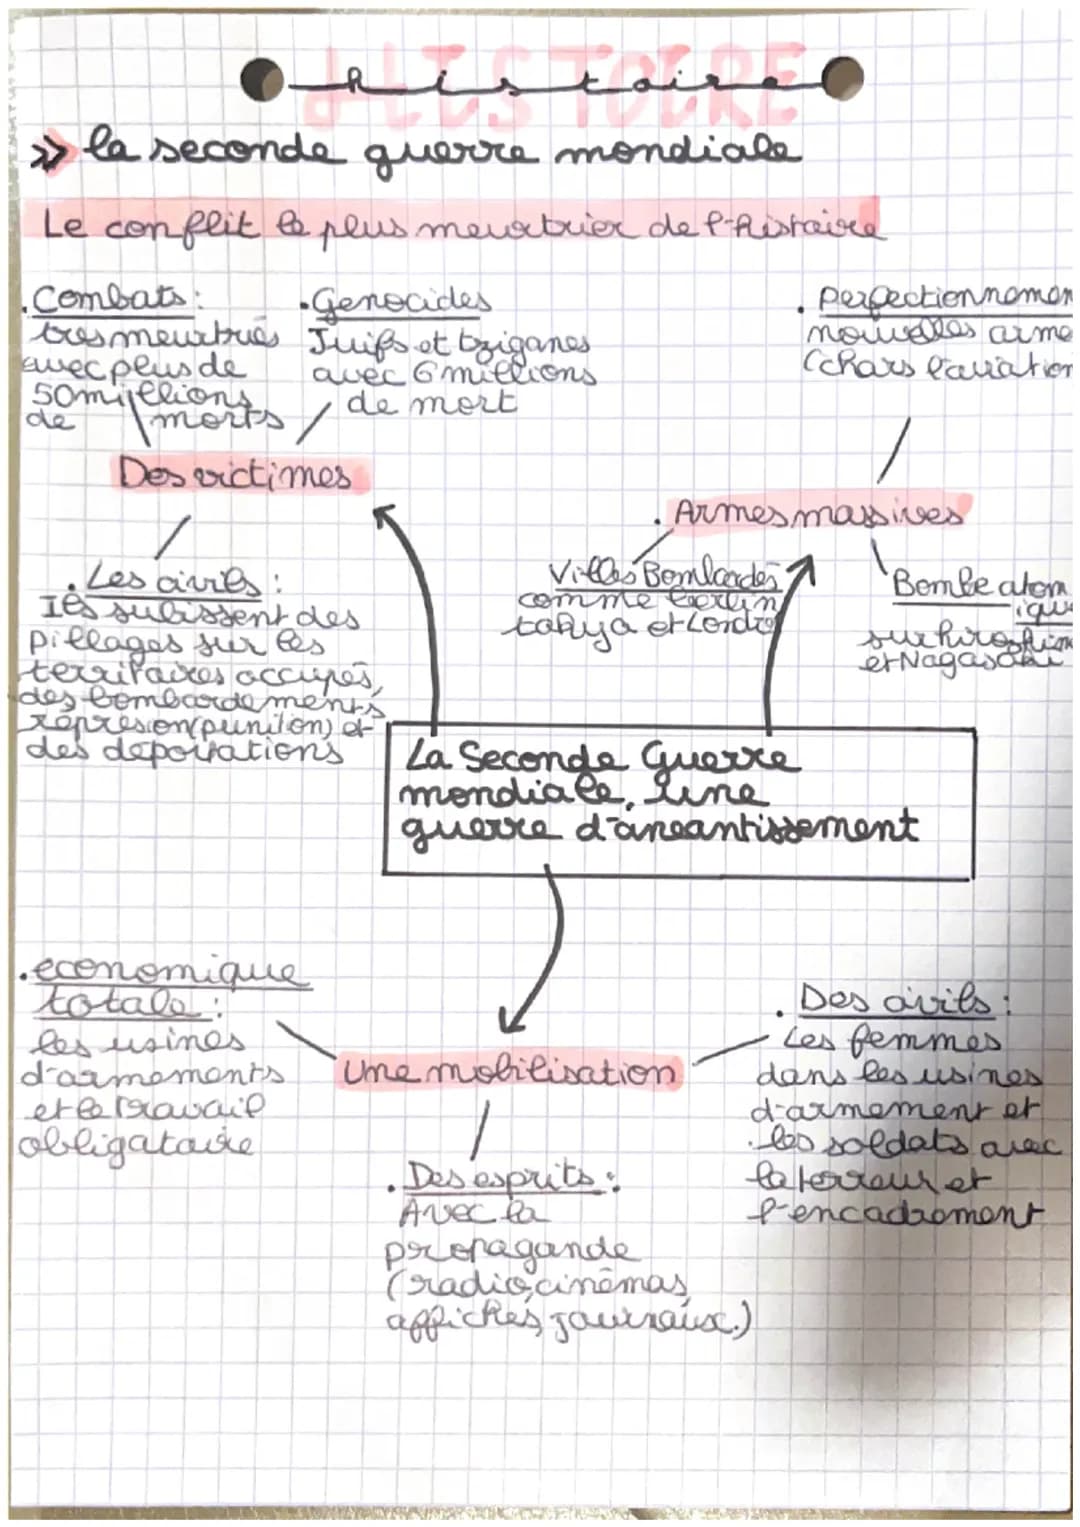 HISTOIRE
histoire
>> la seconde guerre mondiale
Le conflit le plus meurtrier de l'histoire
. Combats :
tres meurtriés
avec plus de
50 millions
de morts
. Genocides
Juifs et tziganes
avec 6 millions
de mort
. perfectionnemen
nouvelles arme
(chars l'aviation
Des victimes
. Armes massives
. Les civils :
Ils subissent des
pillages sur les
territoires occupés,
des bombardements,
represion (punition) et
des deportations
Villes Bombardés
comme berlin
tokyo et Londre
Bombe atom
ique
sur hiroshim
et Nagasaki
La Seconde Guerre
mondiale, une
guerre d'aneantissement
. economique
totale :
les usines
d'armements
et le travail
obligatoire
Une mobilisation
. Des civils :
Les femmes
dans les usines
d'armement et
les soldats avec
la terreur et
l'encadrement
. Des esprits :
Avec la
propagande
(radio, cinémas,
affiches, journaux.)